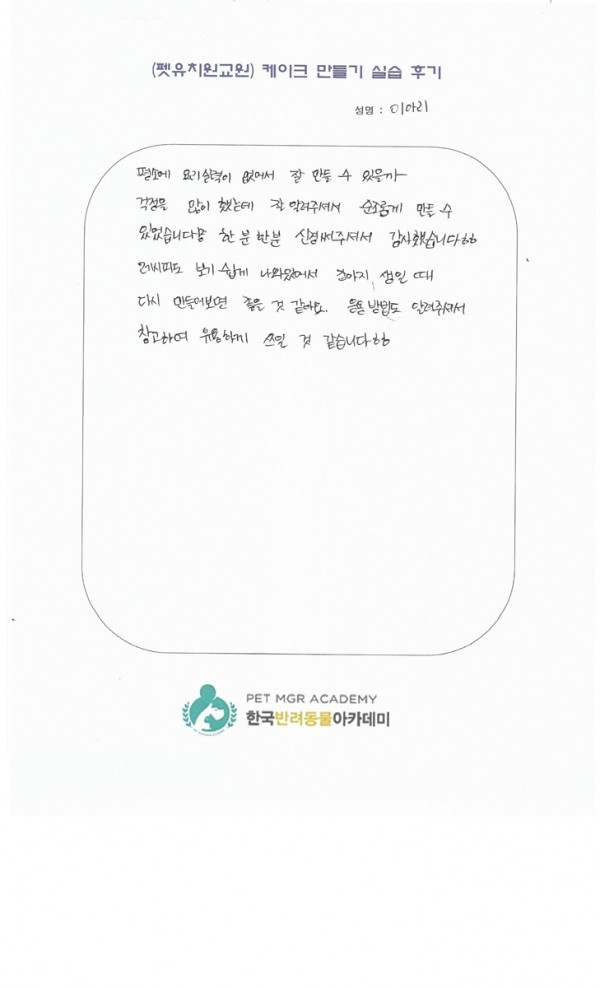 (펫유치원교원) 케이크 만들기 실습 후기
성명 : 이아리
평소에 요리실력이 없어서 잘 만들 수 있을까
걱정을 많이 했는데 잘 알려주셔서 순조롭게 만들 수
있었습니다용 한 분 한분 신경써주셔서 감사했습니다ㅎㅎ
레시피도 보기 쉽게 나와있어서 강아지 생일 때
다시 만들어보면 좋을 것 같아요. 응용 방법도 알려주셔서
참고하여 유용하게 쓰일 것 같습니다ㅎㅎ
PET MGR ACADEMY
한국반려동물아카데미